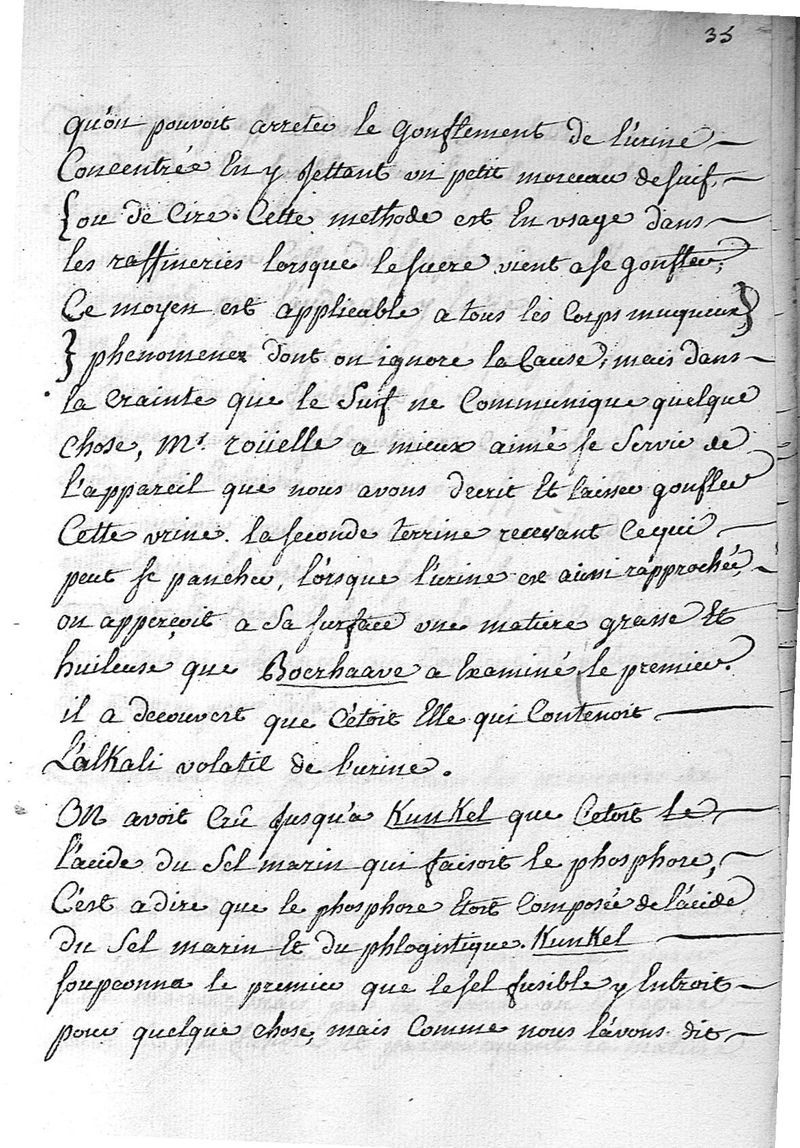 35
qu'on pouvoit arreter le gonflement de l'urine
Concentrée En y Jettant un petit morceau de suif,
{ou de Cire. Cette methode est En usage dans
les raffineries lorsque le sucre vient a se gonfler;
Ce moyen est applicable a tous les Corps muqueux}
} phenomenez dont on ignore la Cause, mais dans
la Crainte que le Suif ne Communique quelque
chose, Mr. roüelle a mieux aimé se Servir de
l'appareil que nous avons decrit Et laisser gonfler
Cette urine. la seconde terrine recevant Ce qui
peut se pancher, lorsque l'urine est ainsi rapprochée,
on apperçoit a Sa surface une matiere grasse Et
huileuse que Boerhaave a Examiné le premier.
il a decouvert que C'étoit Elle qui Contenoit
L'alKali volatil de l'urine.
ON avoit Crû Jusqu'a KunKel que C'etoit le
l'acide du Sel marin qui faisoit le phosphore,
C'est a dire que le phosphore Etoit Composée de l'acide
du Sel marin Et du phlogistique. KunKel
soupçonna le premier que le sel fusible y Entroit
pour quelque chose, mais Comme nous l'avons dit